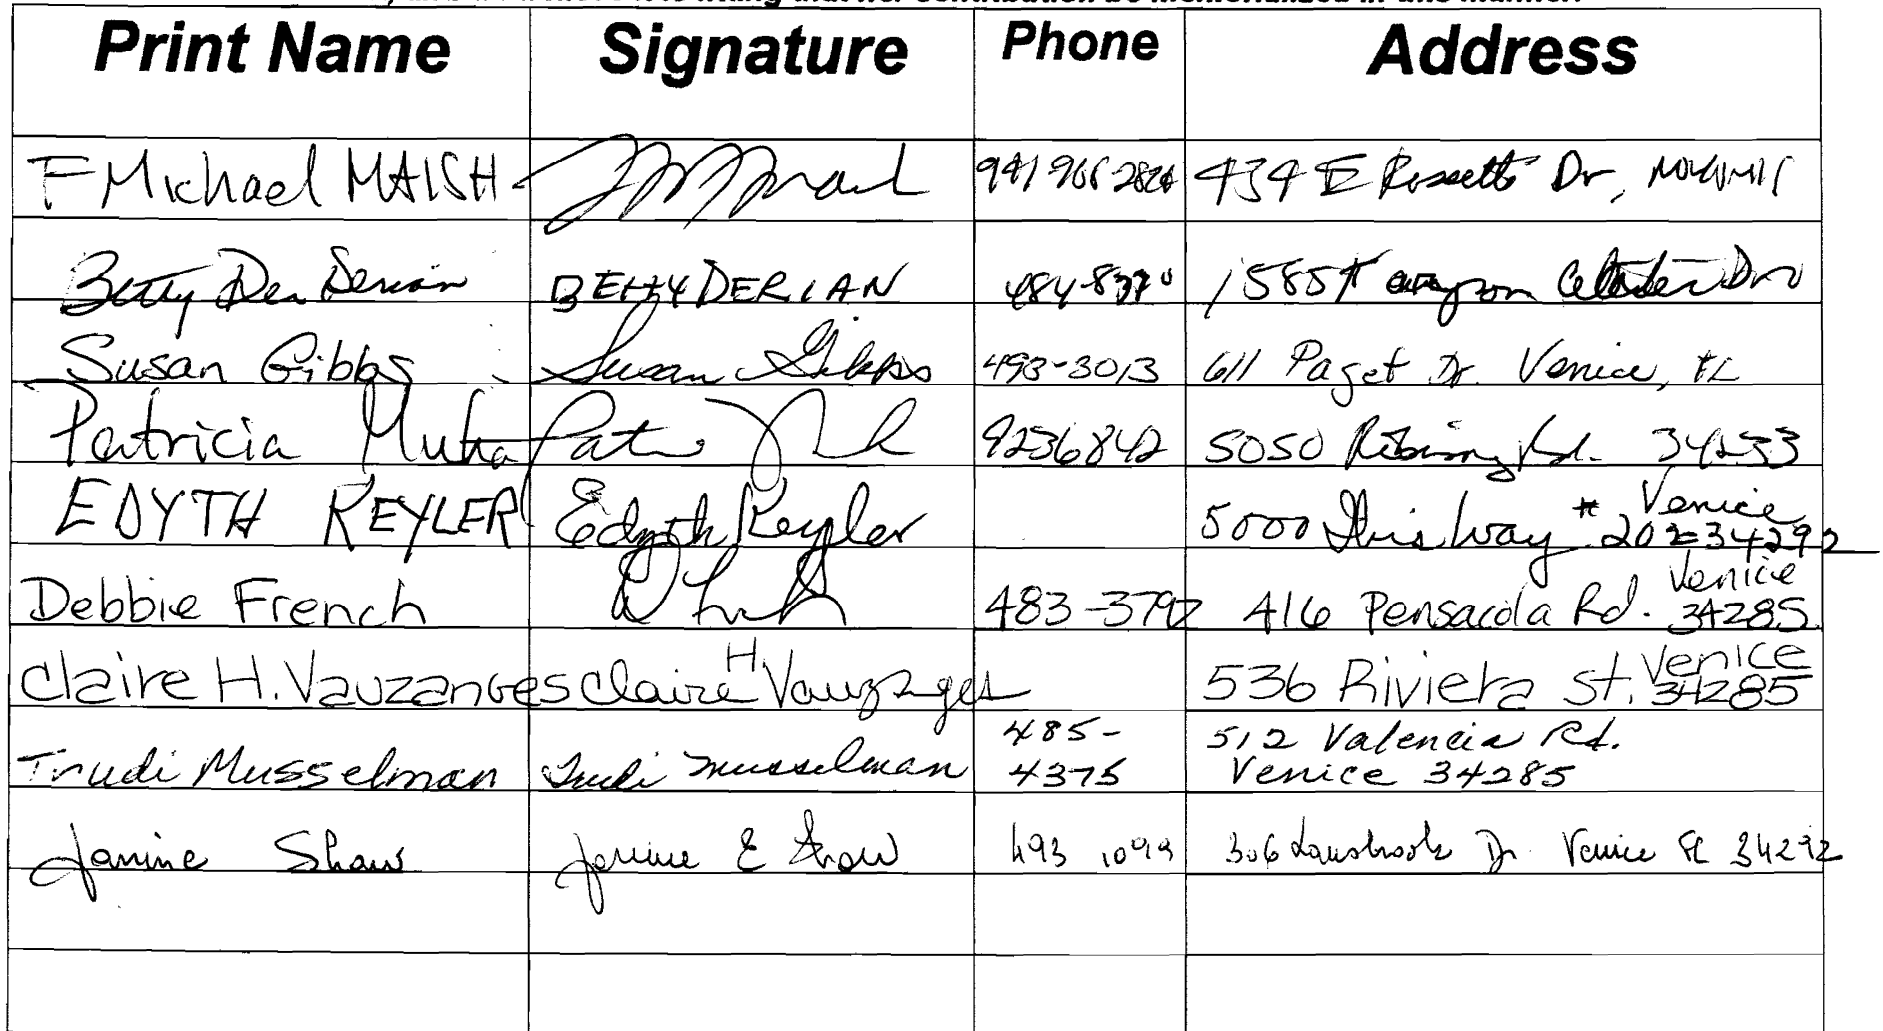 fitting that her contribution be memorialized in this manner.
Print Name Signature Phone Address
F Michael MAISH 941 966 2824 434 E Rossetti Dr,
Betty Der Derian BETTY DERIAN 484-8370 1585
Susan Gibbs Susan Gibbs 493-3013 611 Paget Dr. Venice, FL
Patricia Muha 9236842 5050 Rd. 34233
EDYTH KEYLER Edyth Keyler 5000 Way # 202 Venice 34292
Debbie French 483-3792 416 Pensacola Rd. Venice 34285
Claire H. Vauzanges Claire H. Vauzanges 536 Riviera St. Venice 34285
Trudi Musselman Trudi Musselman 485-4375 512 Valencia Rd.
Venice 34285
Janine Shaw Janine E Shaw 493 1099 306 Dr Venice FL 34292